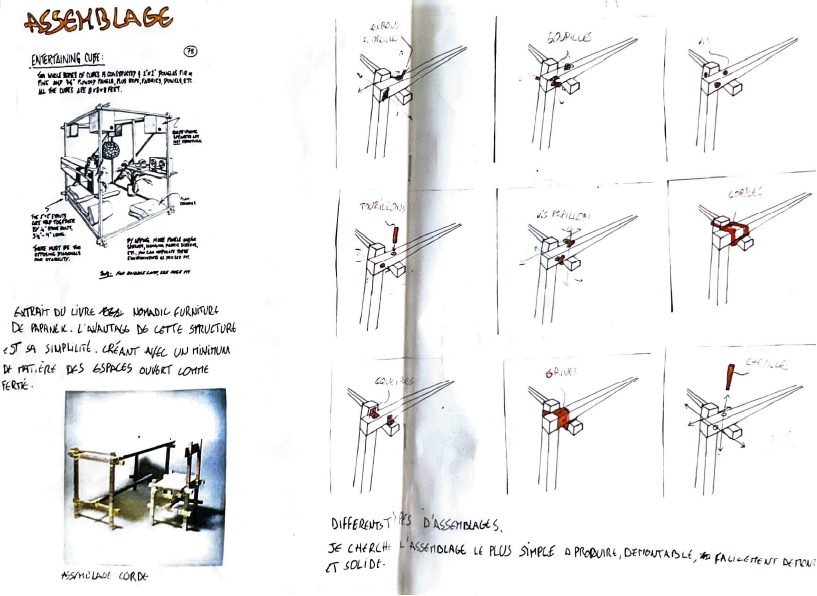 ASSEMBLAGE
78
ENTERTAINING CUBE:
THE WHOLE SERIES OF CUBES IS CONSTRUCTED OF 2"x2" DOUGLAS FIR OR
PINE AND 3/4" PLYWOOD PANELS, PLUS ROPE, FABRICS, DOWELS, ETC.
ALL THE CUBES ARE 8x8x8 FEET.
THE 2"x2" STRUTS
ARE HELD TOGETHER
BY
THERE MUST BE TWO
OPPOSING DIAGONALS
FOR STABILITY.
BY ADDING MORE PANELS AND/OR
ETC., YOU CAN MANIPULATE THESE
ENVIRONMENTS AS YOU SEE FIT.
FOR BUBBLE LAMP, SEE PAGE
EXTRAIT DU LIVRE NOMADIC FURNITURE
DE PAPANEK. L'AVANTAGE DE CETTE STRUCTURE
EST SA SIMPLICITÉ. CRÉANT AVEC UN MINIMUM
DE MATIÈRE DES ESPACES OUVERT COMME
FERMÉ.
ASSEMBLAGE CORDE
GOUPILLES
VIS
TOURILLONS
VIS PAPILLON
CORDES
EQUERRES
GAINES
CHEVILLES
DIFFERENTS TYPES D'ASSEMBLAGES.
JE CHERCHE L'ASSEMBLAGE LE PLUS SIMPLE A PRODUIRE, DEMONTABLE, FACILEMENT DEMONT
ET SOLIDE.